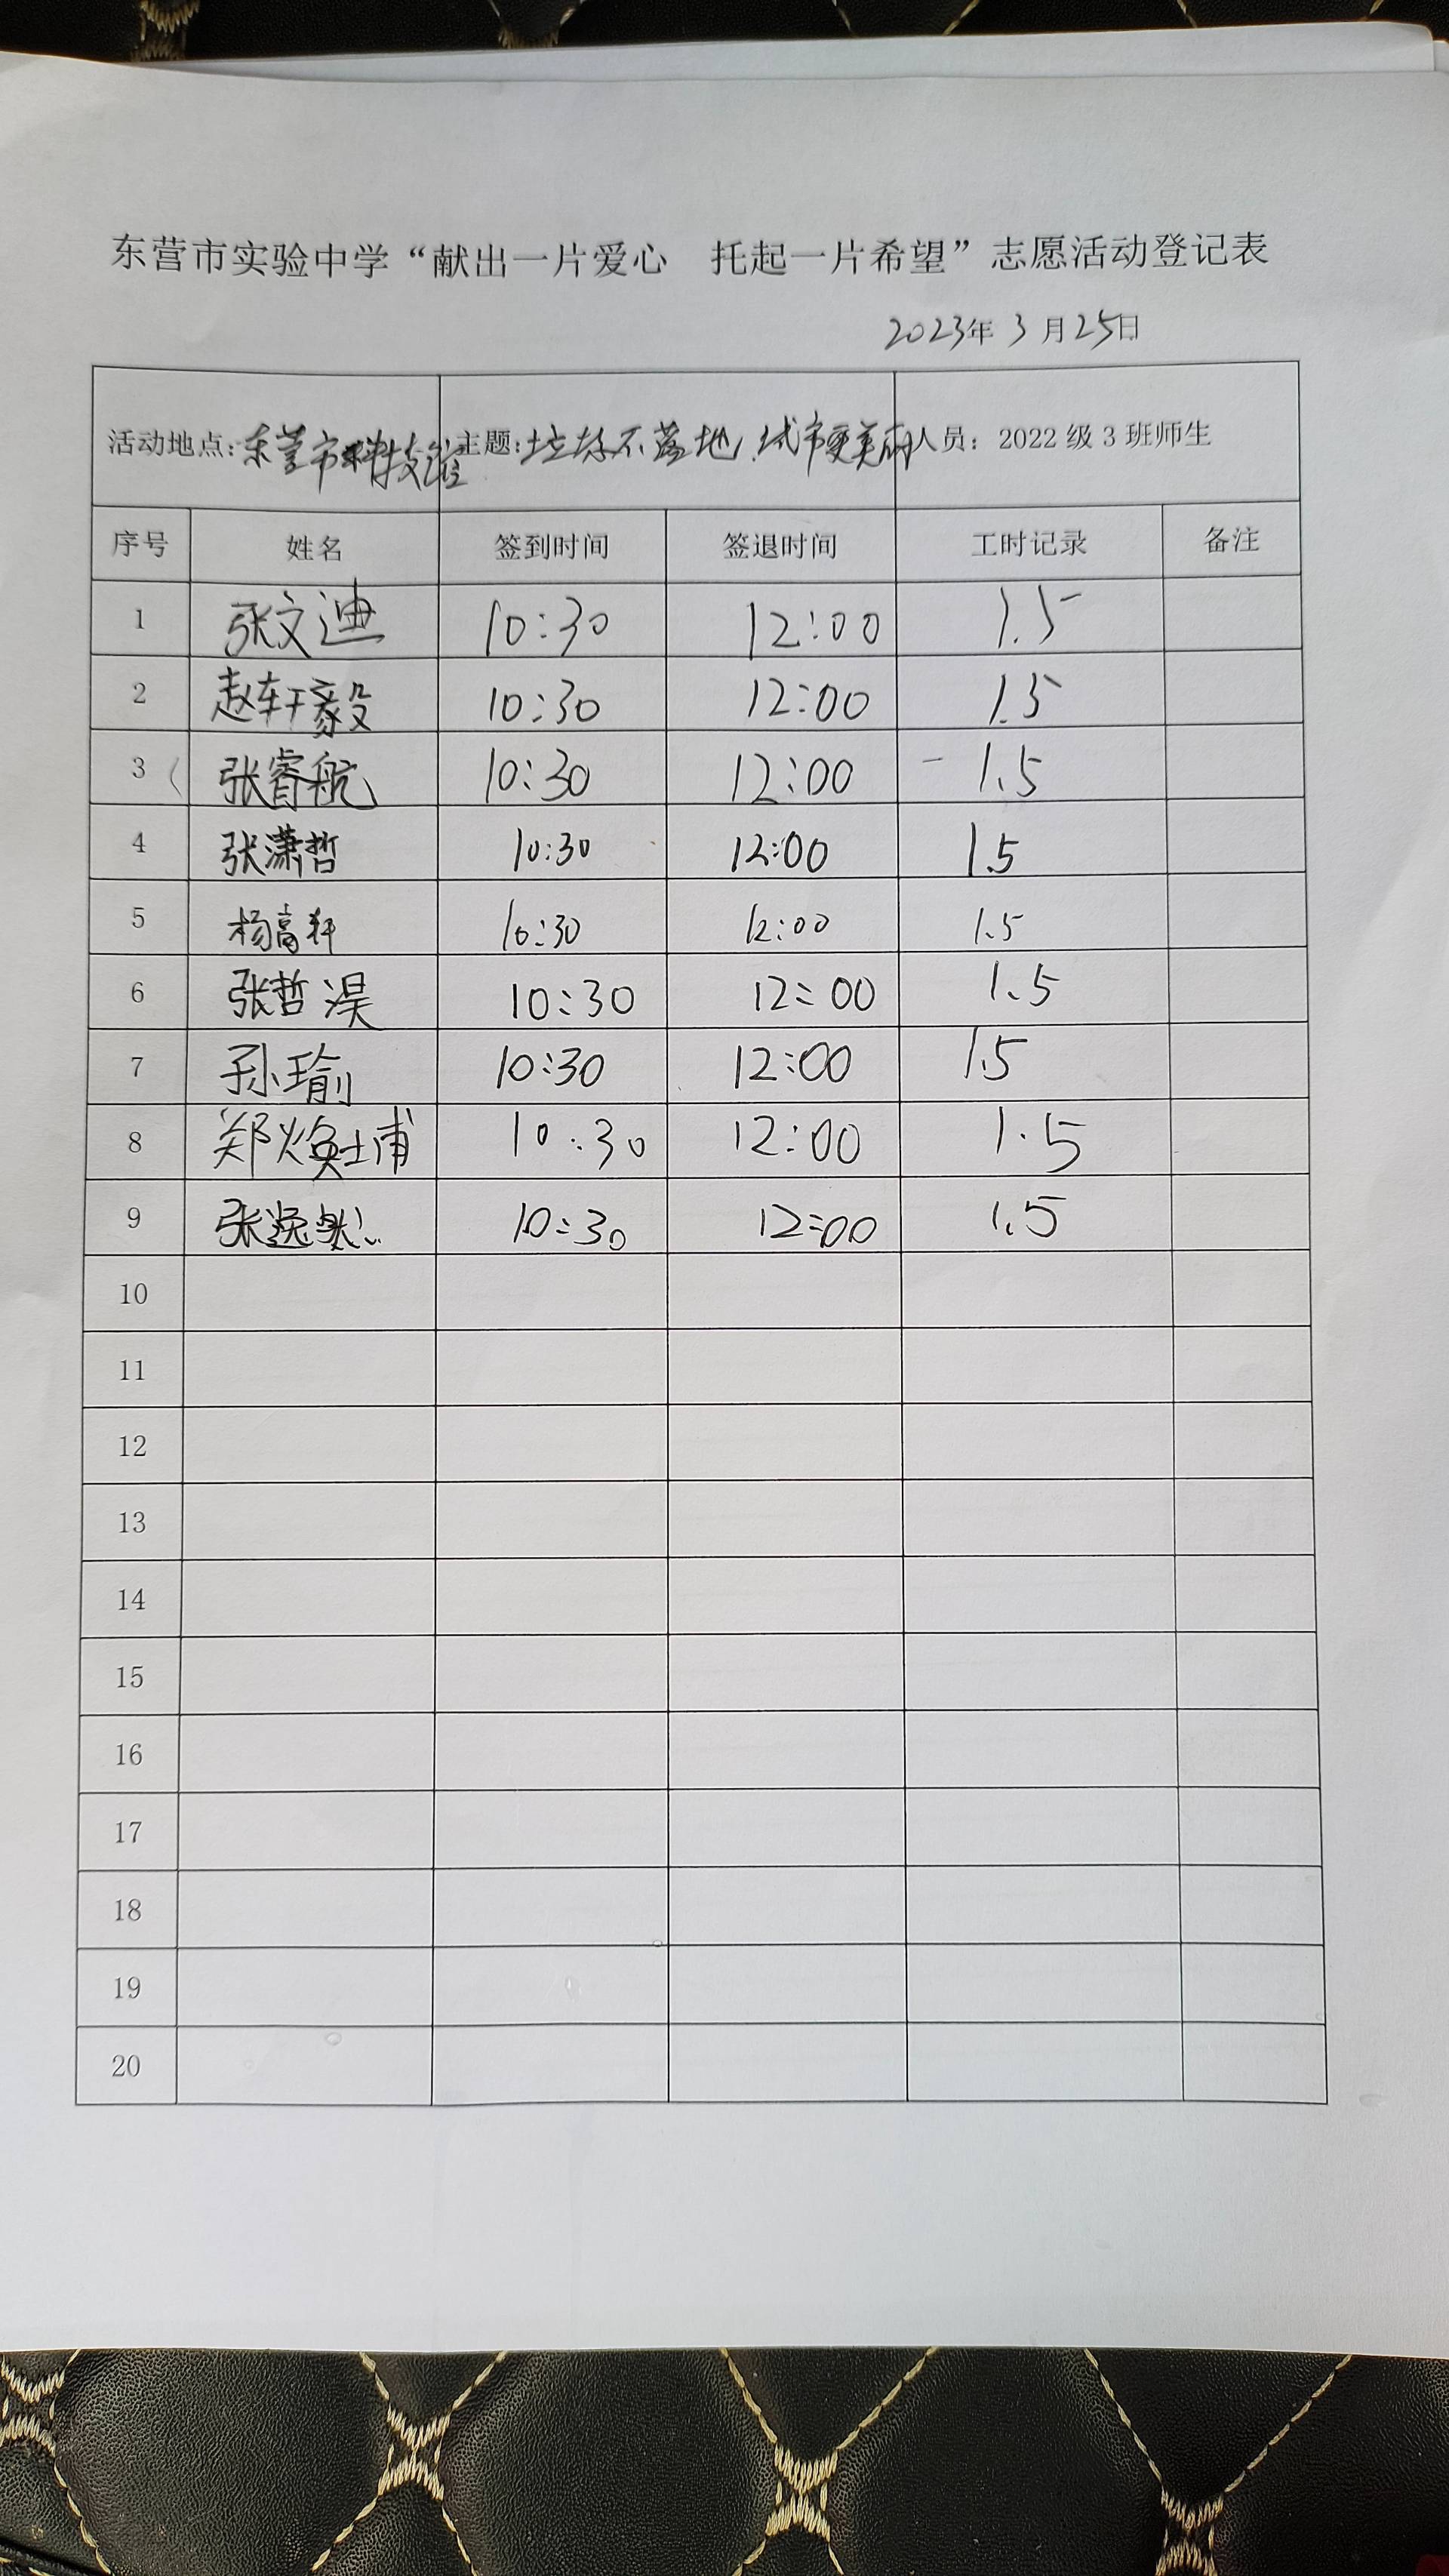 东营市实验中学“献出一片爱心 托起一片希望”志愿活动登记表
2023年3月25日
活动地点:东营市科技馆 主题:垃圾不落地,城市更美丽 人员：2022级3班师生
序号 姓名 签到时间 签退时间 工时记录 备注
1 张文迪 10:30 12:00 1.5
2 赵轩毅 10:30 12:00 1.5
3 张睿航 10:30 12:00 1.5
4 张潇哲 10:30 12:00 1.5
5 杨高轩 10:30 12:00 1.5
6 张哲淏 10:30 12:00 1.5
7 孙瑜 10:30 12:00 1.5
8 郑焕士甫 10:30 12:00 1.5
9 张逸然 10:30 12:00 1.5
10
11
12
13
14
15
16
17
18
19
20